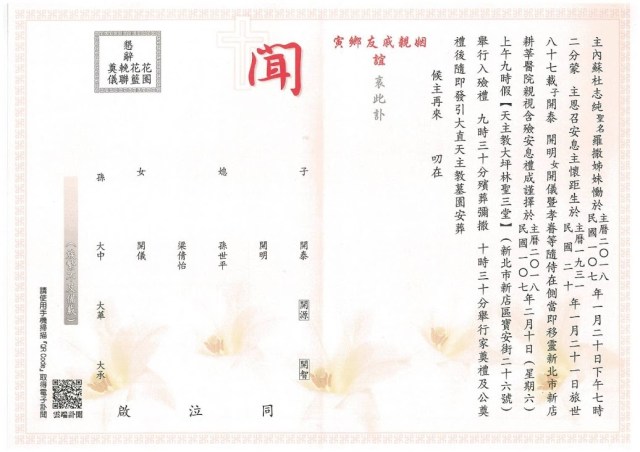 主內蘇杜志純聖名羅撒姊妹慟於主曆二〇一八民國一〇七年一月二十日下午七時
二分蒙 主恩召安息主懷距生於主曆一九三一民國二十年一月二十一日旅世
八十七載子開泰 開明女開儀暨孝眷等隨侍在側當即移靈新北市新店
耕莘醫院親視含殮安息禮成謹擇於主曆二〇一八民國一〇七年二月十日(星期六)
上午九時假【天主教大坪林聖三堂】(新北市新店區寶安街二十六號)
舉行入殮禮 九時三十分殯葬彌撒 十時三十分舉行家奠禮及公奠
禮後隨即發引大直天主教墓園安葬
候主再來 叨在
姻親戚友鄉寅
誼 哀此訃
聞
懇辭
花圈
花籃
輓聯
奠儀
子 開泰 開源 開智
開明
媳 孫世平
梁倩怡
女 開儀
孫 大中 大華 大承
同泣啟
請使用手機掃描『QR Code』取得電子訃聞
雲端訃聞